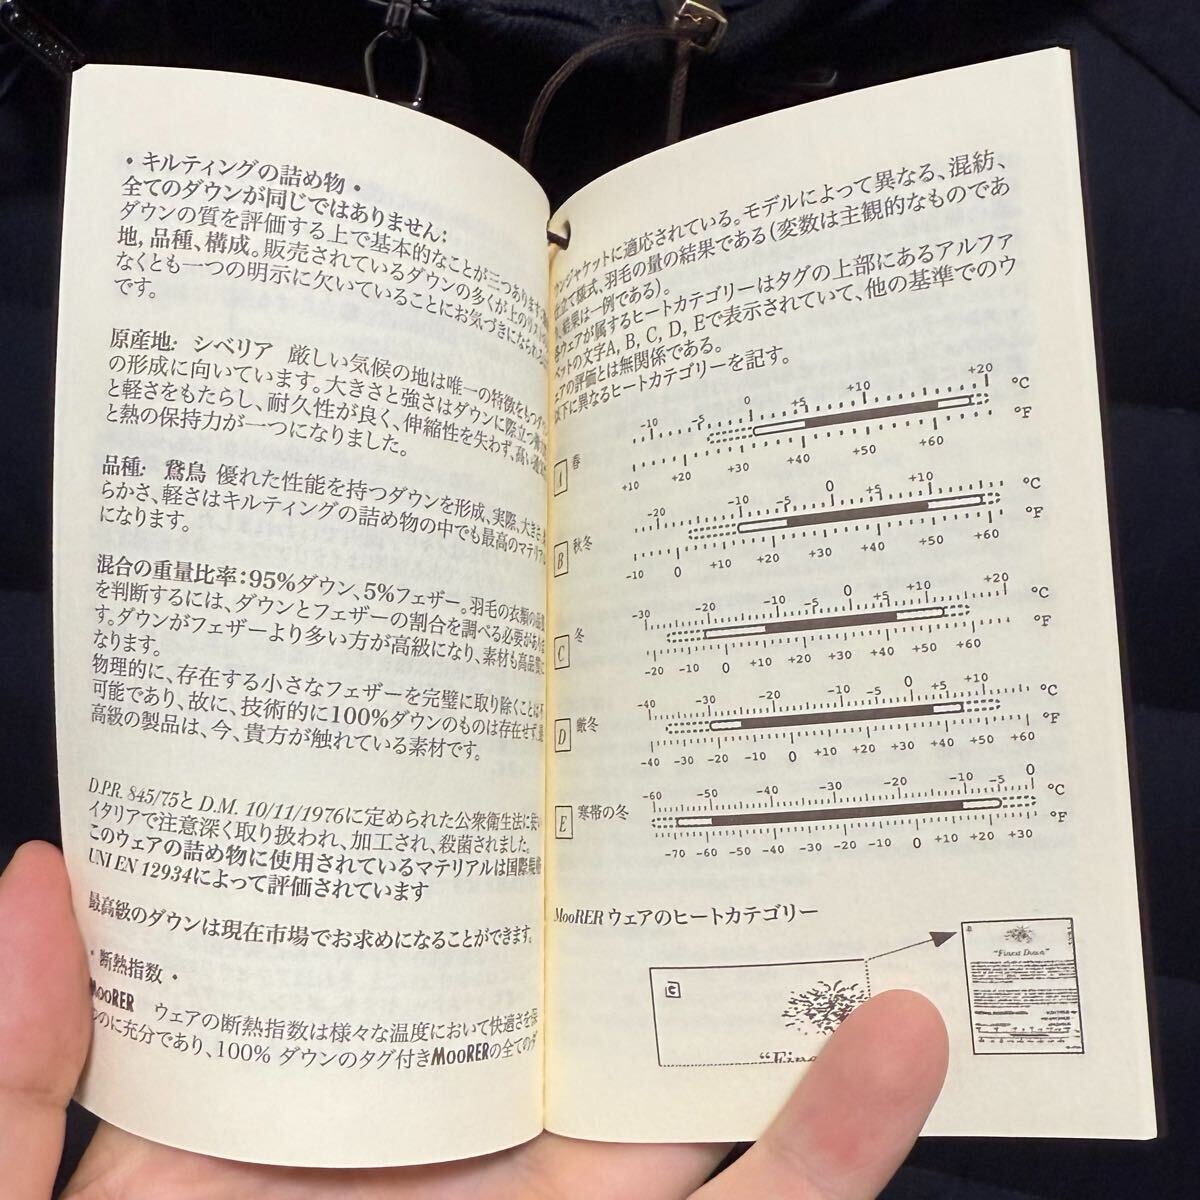 ・キルティングの詰め物・
全てのダウンが同じではありません:
ダウンの質を評価する上で基本的なことが三つあります
地, 品種、構成。販売されているダウンの多くが上の
なくとも一つの明示に欠いていることにお気づきになられる
です。
原産地: シベリア 厳しい気候の地は唯一の特徴をもつ
の形成に向いています。大きさと強さはダウンに際立つ
と軽さをもたらし、耐久性が良く、伸縮性を失わず、高い
と熱の保持力が一つになりました。
品種: 鵞鳥 優れた性能を持つダウンを形成、実際、大きさ、
らかさ、軽さはキルティングの詰め物の中でも最高のマテリアル
になります。
混合の重量比率:95%ダウン、5%フェザー。羽毛の衣類の品質
を判断するには、ダウンとフェザーの割合を調べる必要がありま
す。ダウンがフェザーより多い方が高級になり、素材も高品質に
なります。
物理的に、存在する小さなフェザーを完璧に取り除くことは不
可能であり、故に、技術的に100%ダウンのものは存在せず、最
高級の製品は、今、貴方が触れている素材です。
D.P.R. 845/75と D.M. 10/11/1976に定められた公衆衛生法に従い
イタリアで注意深く取り扱われ、加工され、殺菌されました。
このウェアの詰め物に使用されているマテリアルは国際規格
UNI EN 12934によって評価されています
最高級のダウンは現在市場でお求めになることができます。
・断熱指数・
MooRER ウェアの断熱指数は様々な温度において快適さを保
つのに充分であり、100% ダウンのタグ付きMooRERの全てのダ
ウンジャケットに適応されている。モデルによって異なる、混紡、
仕立て様式、羽毛の量の結果である(変数は主観的なものであ
り、結果は一例である)。
各ウェアが属するヒートカテゴリーはタグの上部にあるアルファ
ベットの文字A, B, C, D, Eで表示されていて、他の基準でのウ
ェアの評価とは無関係である。
以下に異なるヒートカテゴリーを記す。
-10 -5 0 +5 +10 +20 °C
A 春 °F
+10 +20 +30 +40 +50 +60
-20 -10 -5 0 +5 +10 °C
B 秋冬 °F
-10 0 +10 +20 +30 +40 +50 +60
-30 -20 -10 -5 0 +5 +10 +20 °C
C 冬 °F
-20 -10 0 +10 +20 +30 +40 +50 +60
-40 -30 -20 -10 -5 0 +5 +10 °C
D 厳冬 °F
-40 -30 -20 -10 0 +10 +20 +30 +40 +50 +60
-60 -50 -40 -30 -20 -10 -5 0 °C
E 寒帯の冬 °F
-70 -60 -50 -40 -30 -20 -10 0 +10 +20 +30
MooRER ウェアのヒートカテゴリー
C